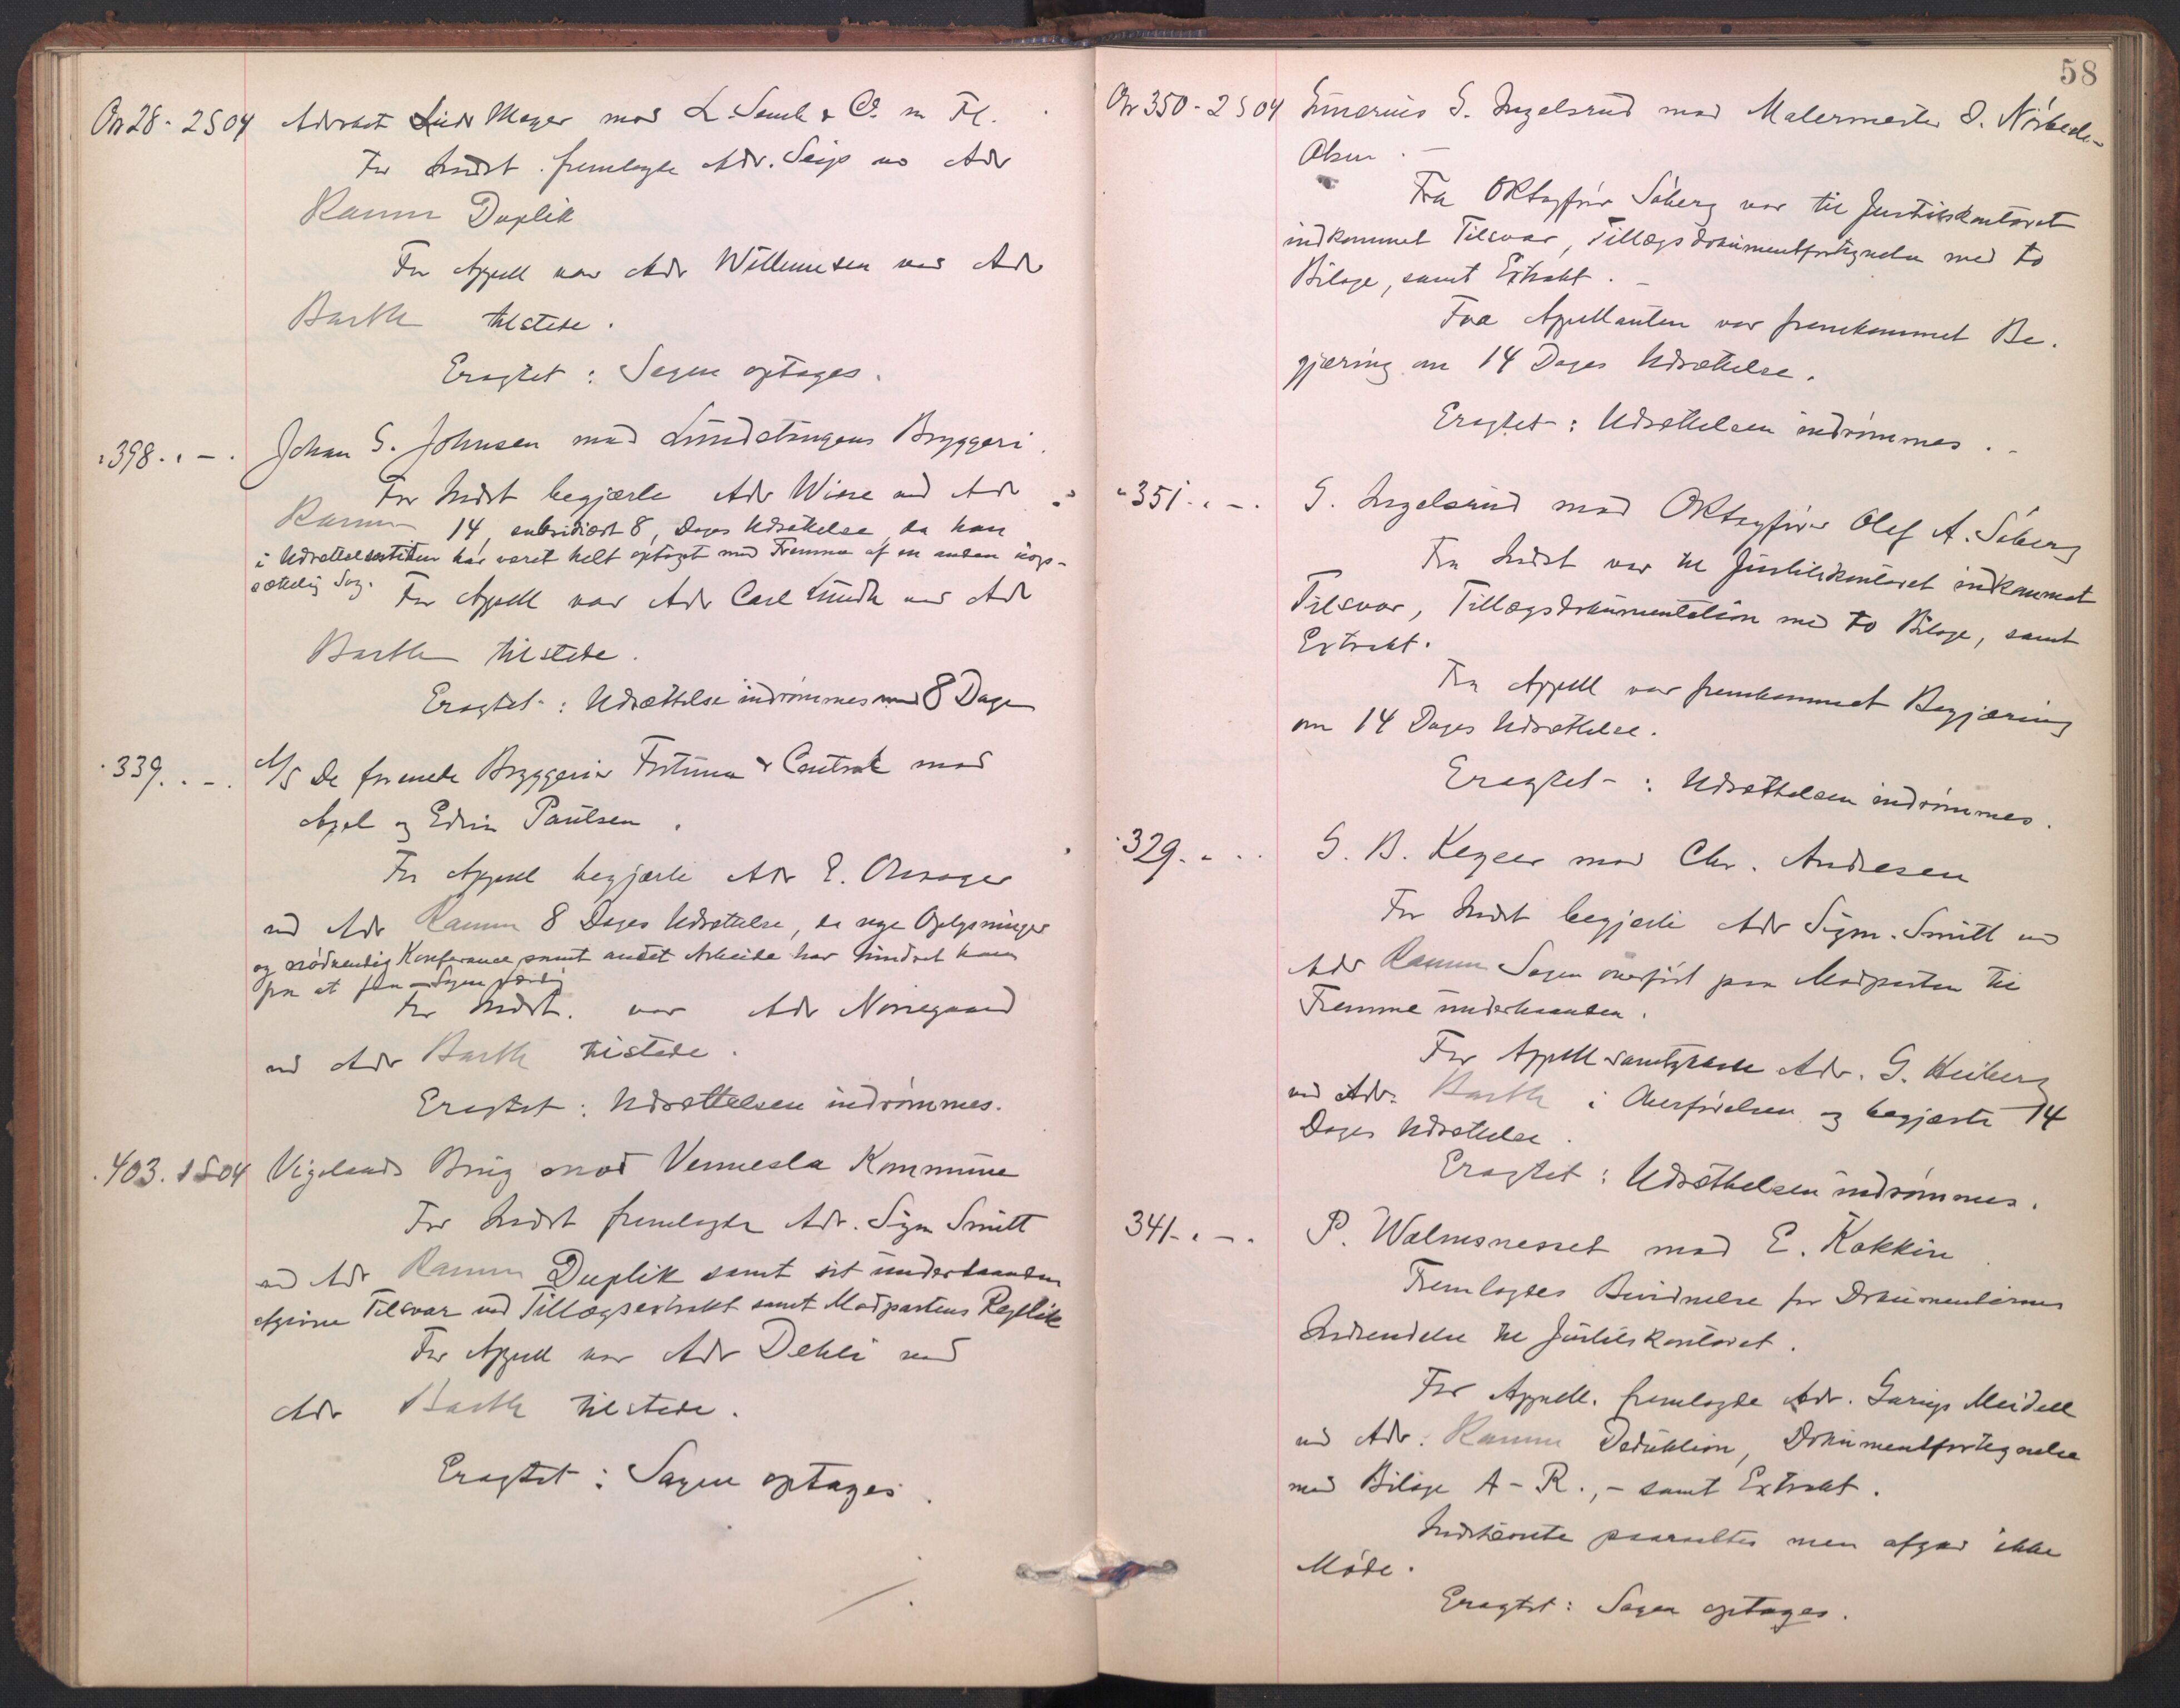 On 28 - 2 S 04 Advokat Ludv Meyer mod L. Semb & Co. m Fl.
For Indst. fremlagde Adv. Seip ved Adv
Ramm Duplik
For Appell var Adv Willumsen ved Adv
Barth tilstede.
Eragtet: Sagen optages.
" 398 " - " Johan G. Johnsen mod Lundetangens Bryggeri.
For Indst begjærte Adv Wisse ved Adv
Ramm 14, subsidiært 8, Dages Udsættelse, da han
i Udsættelsestiden har været helt optaget med Fremme af en anden uop-
sættelig Sag. For Appell var Adv Carl Lundh ved Adv
Barth tilstede.
Eragtet: Udsættelse indrømmes med 8 Dage
" 339 " - " A/S De forenede Bryggerier Fortuna & Central mod
Axel og Edvin Paulsen.
For Appell begjærte Adv E. Omsager
ved Adv Ramm 8 Dages Udsættelse, da nye Oplysninger
og nødvendig Konferance samt andet Arbeide har hindret ham
fra at faa Sagen færdig
For Indst. var Adv Norregaard
ved Adv Barth tilstede.
Eragtet: Udsættelsen indrømmes.
" 403. 1 S 04 Vigelands Brug mod Vennesla Kommune
For Indst fremlagde Adv. Sigm Smitt
ved Adv Ramm Duplik samt sit underhaanden
afgivne Tilsvar med Tillægsextrakt samt Modpartens Replik
For Appell var Adv Dehli ved
Adv Barth tilstede.
Eragtet: Sagen optages.
58
On 350 - 2 S 04 G. Ingelsrud mod Malermester O. Nørbech-
Olsen. -
Fra ORsagfører Søberg var til Justitskontoret
indkommet Tilsvar, Tillægsdokumentfortegnelse med to
Bilage, samt Extrakt. -
Fra Appellanten var fremkommet Be-
gjæring om 14 Dages Udsættelse.
Eragtet: Udsættelsen indrømmes. -
" 351 " - " G. Ingelsrud mod ORsagfører Olef A. Søberg
Fra Indst var til Justitskontoret indkommet
Tilsvar, Tillægsdokumentation med to Bilage, samt
Extrakt.
Fra Appell var fremkommet Begjæring
om 14 Dages Udsættelse.
Eragtet: Udsættelsen indrømmes.
" 329 " - " G. B. Keyser mod Chr. Andresen
For Indst begjærte Adv Sigm. Smitt ved
Adv Ramm Sagen overført paa Modparten til
Fremme underhaanden.
For Appell samtykkede Adv. G. Heiberg
ved Adv. Barth i Overførelsen og begjærte 14
Dages Udsættelse.
Eragtet: Udsættelsen indrømmes.
341 " - " P. Walmsnesset mod E. Kokkin
Fremlagdes Bevidnelse for Dokumenternes
Indsendelse til Justitskontoret.
For Appell. fremlagde Adv. Meidell
ved Adv. Ramm Deduktion, Dokumentfortegnelse
med Bilage A - R., - samt Extrakt.
Indstevnte paaraabtes men afgav ikke
Møde.
Eragtet: Sagen optages.